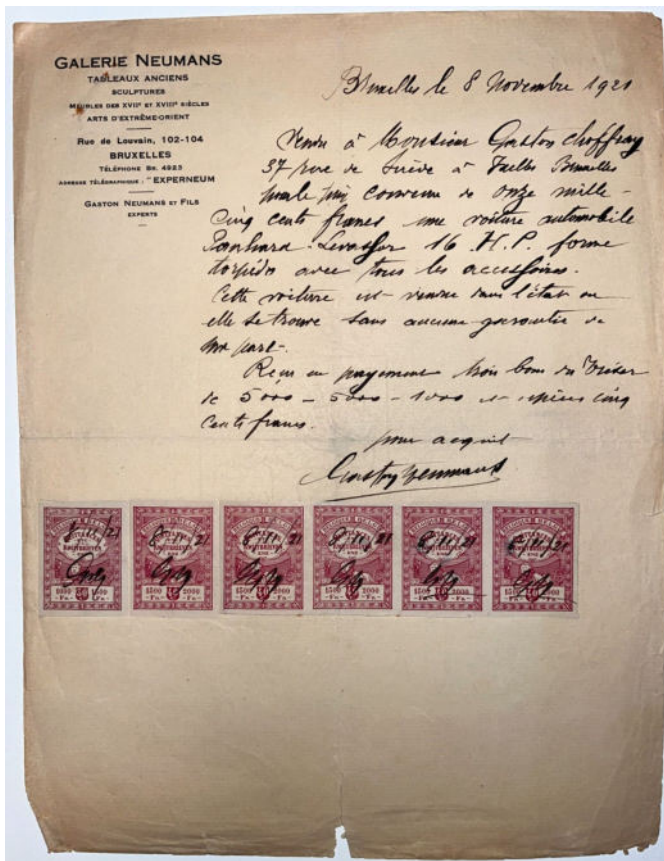 GALERIE NEUMANS
TABLEAUX ANCIENS
SCULPTURES
MEUBLES DES XVIIe ET XVIIIe SIÈCLES
ARTS D'EXTRÊME-ORIENT
Rue de Louvain, 102-104
BRUXELLES
TÉLÉPHONE BR. 4923
ADRESSE TÉLÉGRAPHIQUE : "EXPERNEUM
GASTON NEUMANS ET FILS
EXPERTS
Bruxelles le 8 Novembre 1921
Vendu à Monsieur Gaston Choffray
37 rue de Suède à Bruxelles
pour le prix convenu de onze mille
cinq cents francs une voiture automobile
Panhard-Levassor 16 H.P. forme
torpédo avec tous les accessoires.
Cette voiture est vendue dans l'état ou
elle se trouve sans aucune garantie de
ma part.
Reçu en payement trois bons du Trésor
de 5000 - 5000 - 1000 et espèces cinq
cents francs.
pour acquit
Gaston Neumans
BELGIQUE BELGIË
8/11/21 8/11/21 8/11/21 8/11/21 8/11/21
2000 1500
1500 2000
1500 2000
1500 2000
1500 2000
1500 2000